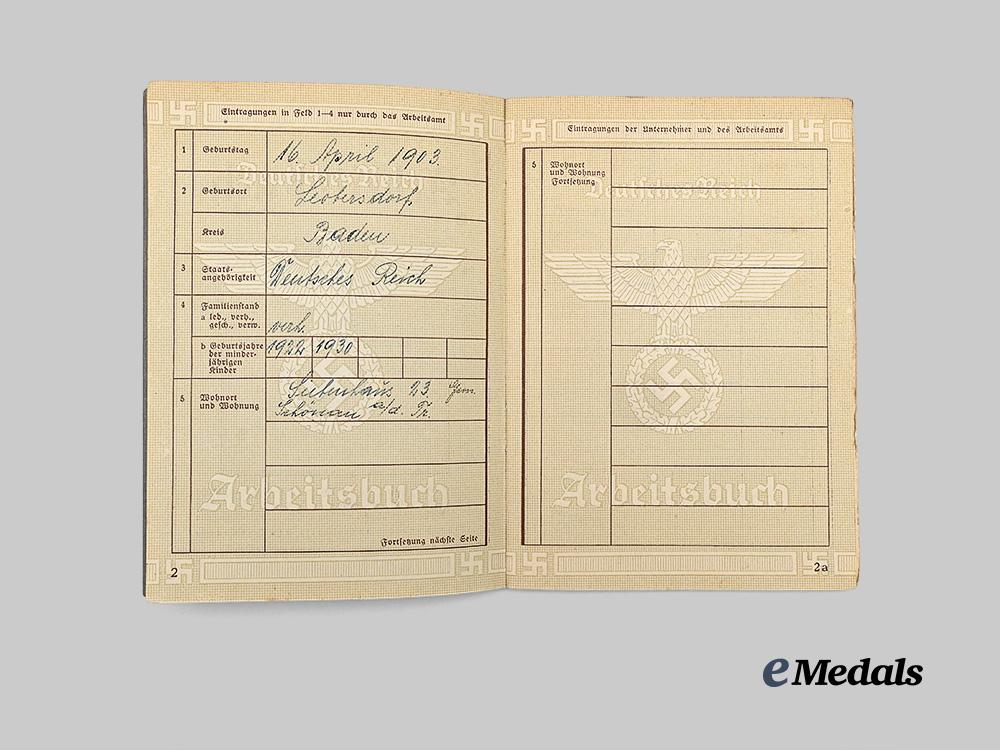 Eintragungen in Feld 1—4 nur durch das Arbeitsamt
1 Geburtstag 16. April 1903.
Deutsches Reich
2 Geburtsort Leobersdorf
Kreis Baden
3 Staats-
angehörigkeit Deutsches Reich
4 Familienstand
a led., verh.,
gesch., verw. verh.
b Geburtsjahre 1922 1930
der minder-
jährigen
Kinder
5 Wohnort
und Wohnung
23. Gem.
Schönau a/d. Tr.
Arbeitsbuch
Fortsetzung nächste Seite
2
Eintragungen der Unternehmer und des Arbeitsamts
5 Wohnort
und Wohnung
Fortsetzung
Deutsches Reich
Arbeitsbuch
2a
eMedals